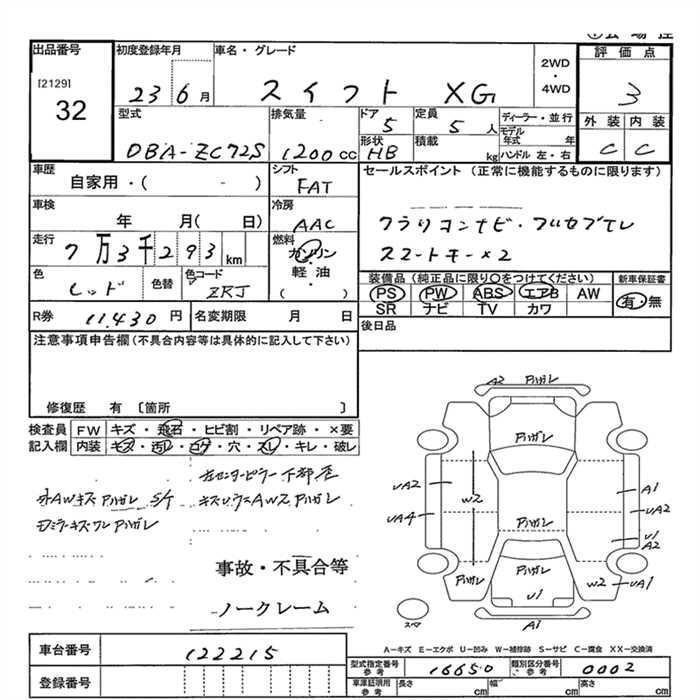 出品番号 初度登録年月 車名・グレード 評価点
[2129]
32
23 6月 スイフト XG 2WD・4WD 3
型式 排気量 ドア 定員 ディーラー・並行 外装 内装
DBA-ZC72S 1200cc 5 5人 モデル年式 年 C C
形状 HB 積載 kg ハンドル 左・右
車歴 シフト セールスポイント (正常に機能するものに限ります)
自家用・( - ) FAT
車検 冷房 クラリオンナビ・フルセグTV
年 月( 日) AAC スマートキー×2
走行 燃料
7万3千293km ガソリン・軽油・( )
装備品 (純正品に限り〇をつけてください) 新車保証書
色 色替 色コード PS PW ABS エアB AW 有・無
レッド ZRJ SR ナビ TV カワ
R券 11,430円 名変期限 月 日 後日品
注意事項申告欄 (不具合内容等は具体的に記入して下さい)
修復歴 有 〔箇所 〕
検査員 FW キズ・飛石・ヒビ割・リペア跡・×要
記入欄 内装 キズ・汚レ・コゲ・穴・スレ・キレ・破レ
A2 Pハガレ
Pハガレ
UA2 W2 A1
UA4 UA2
Pハガレ U1
A2
Pハガレ Pハガレ W2 UA1
U1
スペア A1
事故・不具合等
ノークレーム
A―キズ E―エクボ U―凹み W―補修跡 S―サビ C―腐食 XX―交換済
車台番号 122215
型式指定番号 参考 16650 類別区分番号 参考 0002
登録番号 車庫証明用 参考 長さ cm 幅 cm 高さ cm